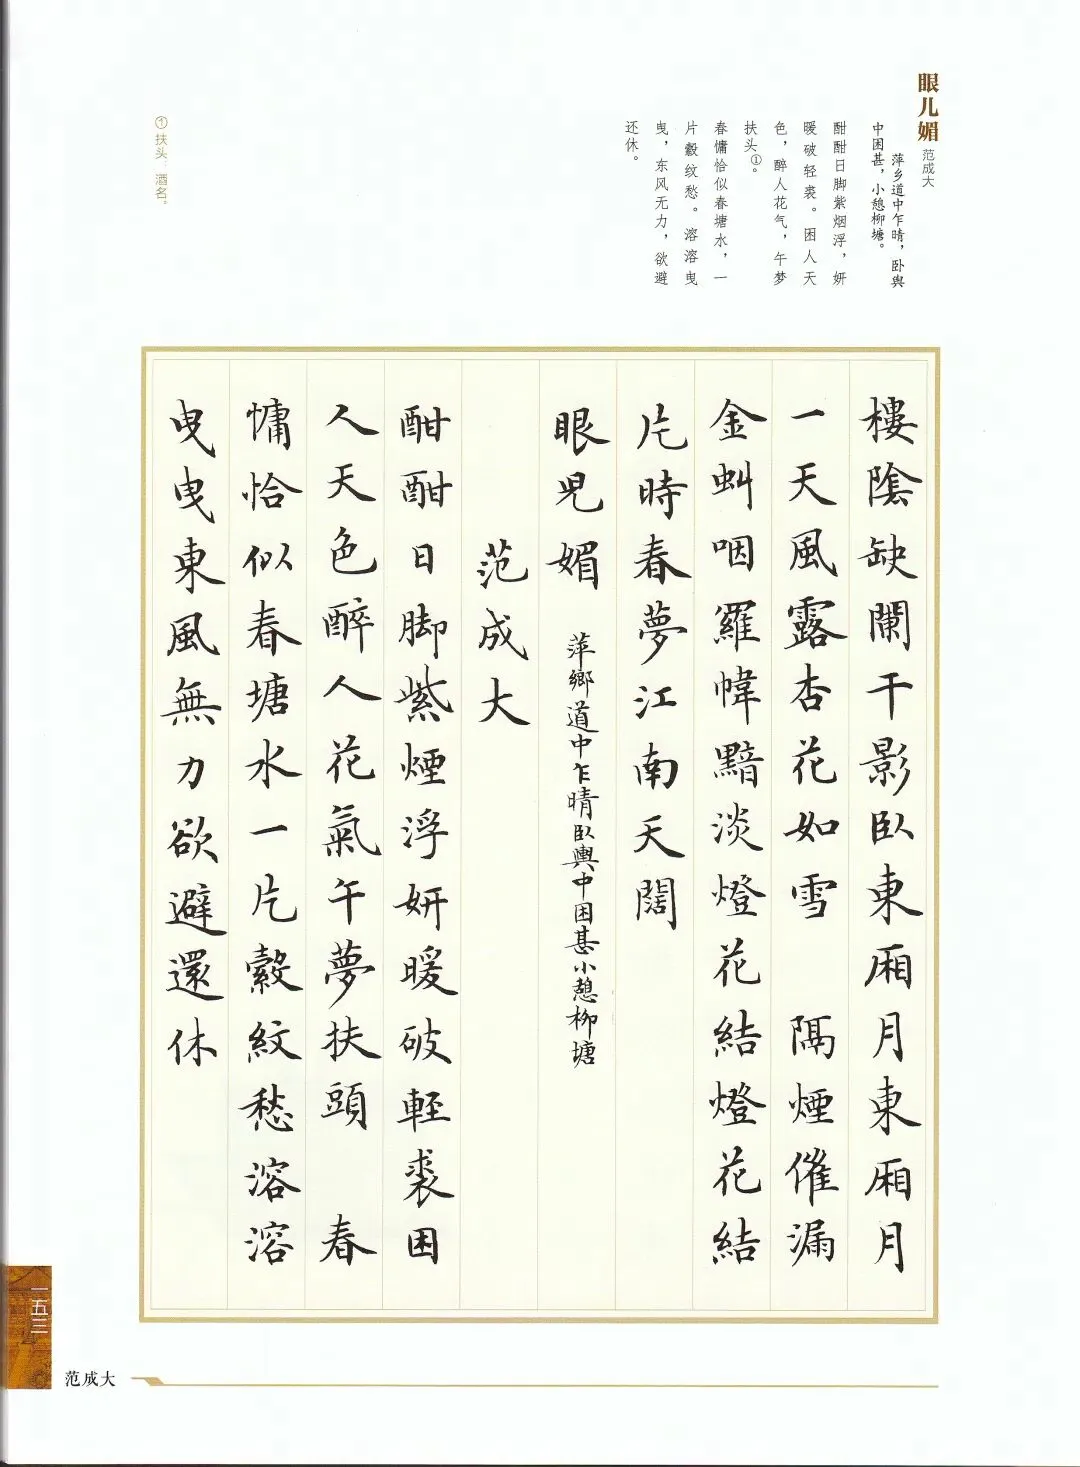 眼儿媚 范成大
萍乡道中乍晴，卧舆
中困甚，小憩柳塘。
酣酣日脚紫烟浮，妍
暖破轻裘。困人天
色，醉人花气，午梦
扶头①。
春慵恰似春塘水，一
片縠纹愁。溶溶曳
曳，东风无力，欲避
还休。
①扶头：酒名。
樓陰缺闌干影臥東厢月東厢月
一天風露杏花如雪 隔煙催漏
金虯咽羅幃黯淡燈花結燈花結
片時春夢江南天闊
眼兒媚 萍鄉道中乍晴臥輿中困甚小憩柳塘
范成大
酣酣日脚紫煙浮妍暖破輕裘困
人天色醉人花氣午夢扶頭 春
慵恰似春塘水一片縠紋愁溶溶
曳曳東風無力欲避還休
一五三
范成大